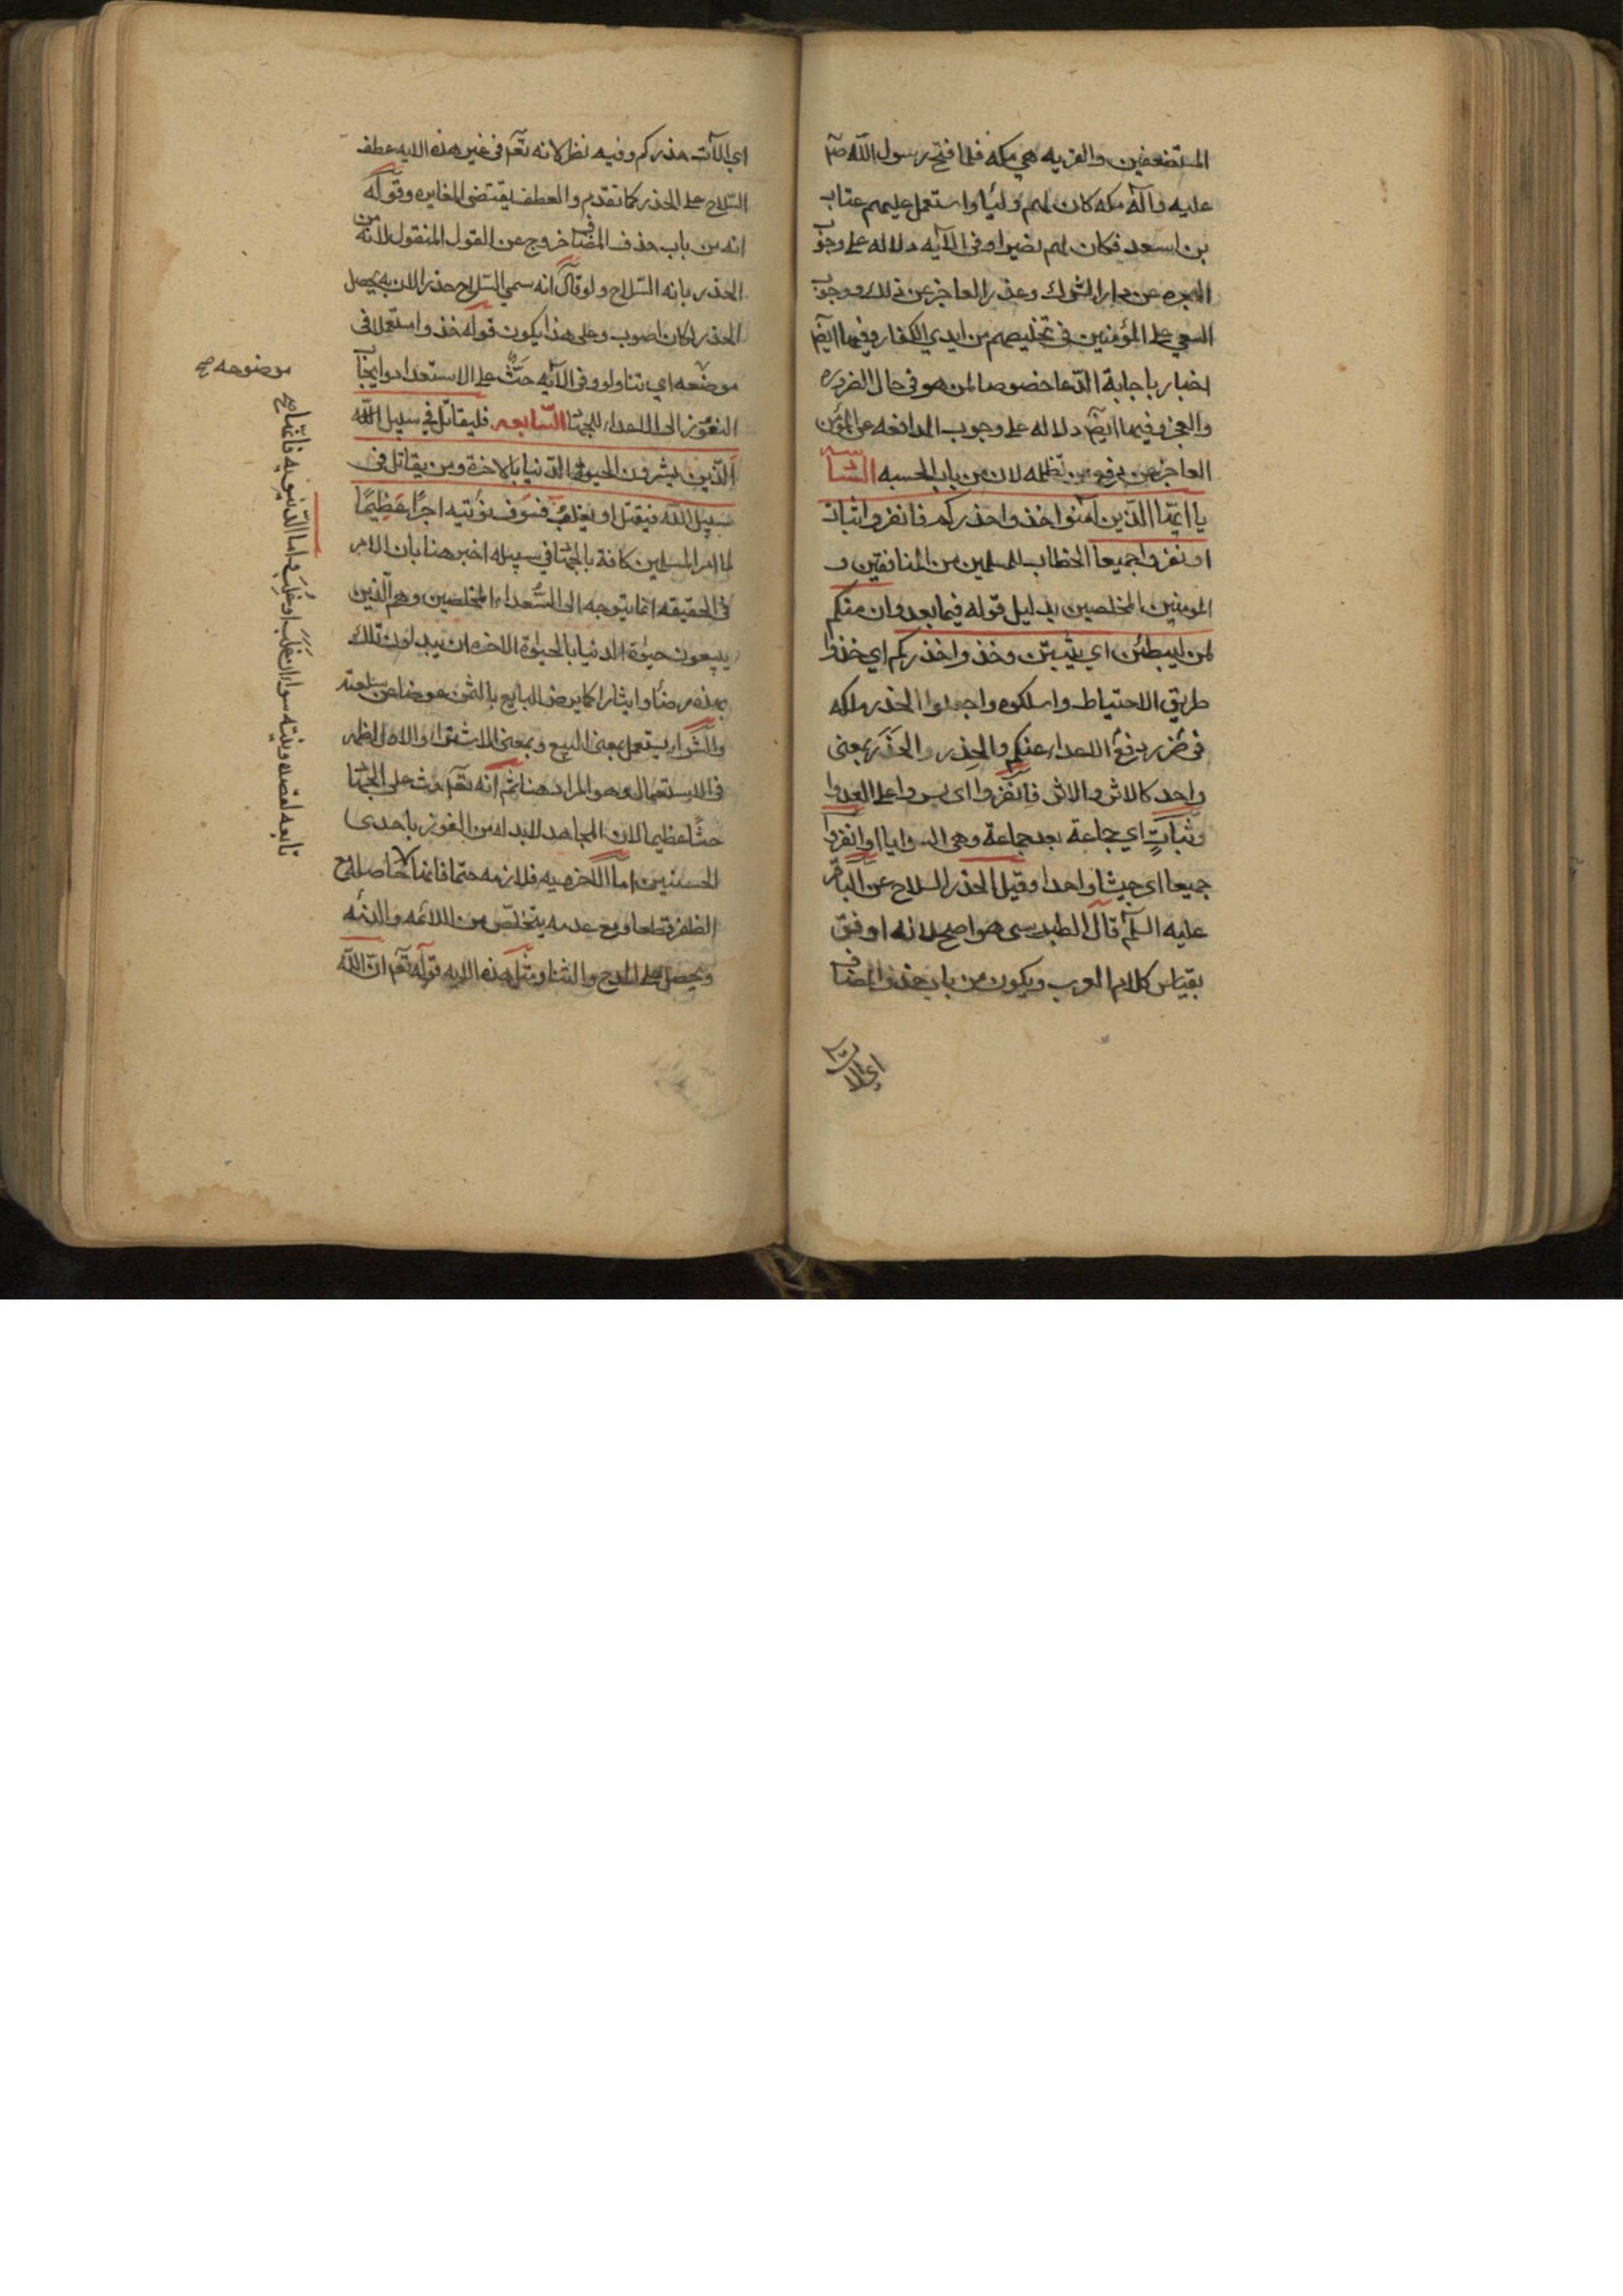 المستضعفين والقريه هي مكه فلما فتح رسول الله صم
عليه وآله مكه كان لهم وليا واستعمل عليهم عتاب
بن اسعد فكان لهم نصيرا وفى الآيه دلاله على وجوب
الهجره عن دار الشرك وعذر العاجز عن ذلك ووجوب
السعي على المؤمنين فى تخليصهم من ايدي الكفار وفيها ايضا
اخبار باجابة الدعا خصوصا لمن هو فى حال الضروره
والعجز وفيها ايضا دلاله على وجوب المدافعه عن المؤمن
العاجز عن دفع من يظلمه لان من باب الحسبه السادسه
يا ايها الذين آمنوا خذوا حذركم فانفروا ثبات
او نفروا جميعا الخطاب للمسلمين من المنافقين و
المومنين المخلصين بدليل قوله فيما بعد وان منكم
لمن ليبطئن اي يثبتن وخذوا حذركم اي خذوا
طريق الاحتياط واسلكوه واجعلوا الحذر ملكه
فى دفع الاعداء عنكم والحِذر والحَذَر بمعنى
واحد كالاثر والاثر فانفروا اى سيروا على العدوا
وثباتٍ اي جماعة بعد جماعة وهى السرايا او انفروا
جميعا اى جيشا واحدا وقيل الحذر السلاح عن الباقر
عليه السلم قال الطبرسى هو اصح لانه اوفق
بقياس كلام العرب ويكون من باب حذف المضاف
اى آلات
اي آلات حذركم وفيه نظر لانه تعم فى غير هذه الايه عطف
السلاح على الحذر كما تقدم والعطف يقتضى المغايره وقوله
انه من باب حذف المضاف خروج عن القول المنقول لانه من
الحذر بانه السلاح ولو قال انه سمي السلاح حذرا لان به يحصل
الحذر لكان اصوب وعلى هذا يكون قوله خذوا مستعملا فى
موضعه اي تناولوا وفى الآيه حَثٌّ على الاستعداد وايجاب
النفوز الى الاعداء للجهاد السابعه فليقاتل في سبيل الله
الذين يشرون الحيوة الدنيا بالاخرة ومن يقاتل فى
سبيل الله فيقتل او يغلب فسوف نؤتيه اجرًا عظيمًا
لما امر المسلمين كافة بالجهاد في سبيله اخبر هنا بان الامر
فى الحقيقه انما يتوجه الى السُّعداء المخلصين وهم الذين
يبيعون حيوة الدنيا بالحيوة الاخره اى يبدلون تلك
بهذه رضًا وايثارا كما يرضى البايع بالثمن عوضا عن سلعته
والشراء يستعمل بمعنى البيع وبمعنى الاشتراء والاول اظهر
فى الاستعمال وهو المراد هنا ثم انه تعم حث على الجهاد
حثًا عظيما لان المجاهد لابد له من الفوز باحدى
الحسنيين اما الاخرويه فلازمه حتما فانها حاصله مع
الظفر قطعا ومع عدمه يتخلص من اللائمه والدنيه
ويحصل على المدح والثنا ومثل هذه الايه قوله تعم ان الله
موضوعه صح
تابعه لقصده ونيته سواء ان غَلَبَ او غُلِبَ واما الدنيويه فانها صح